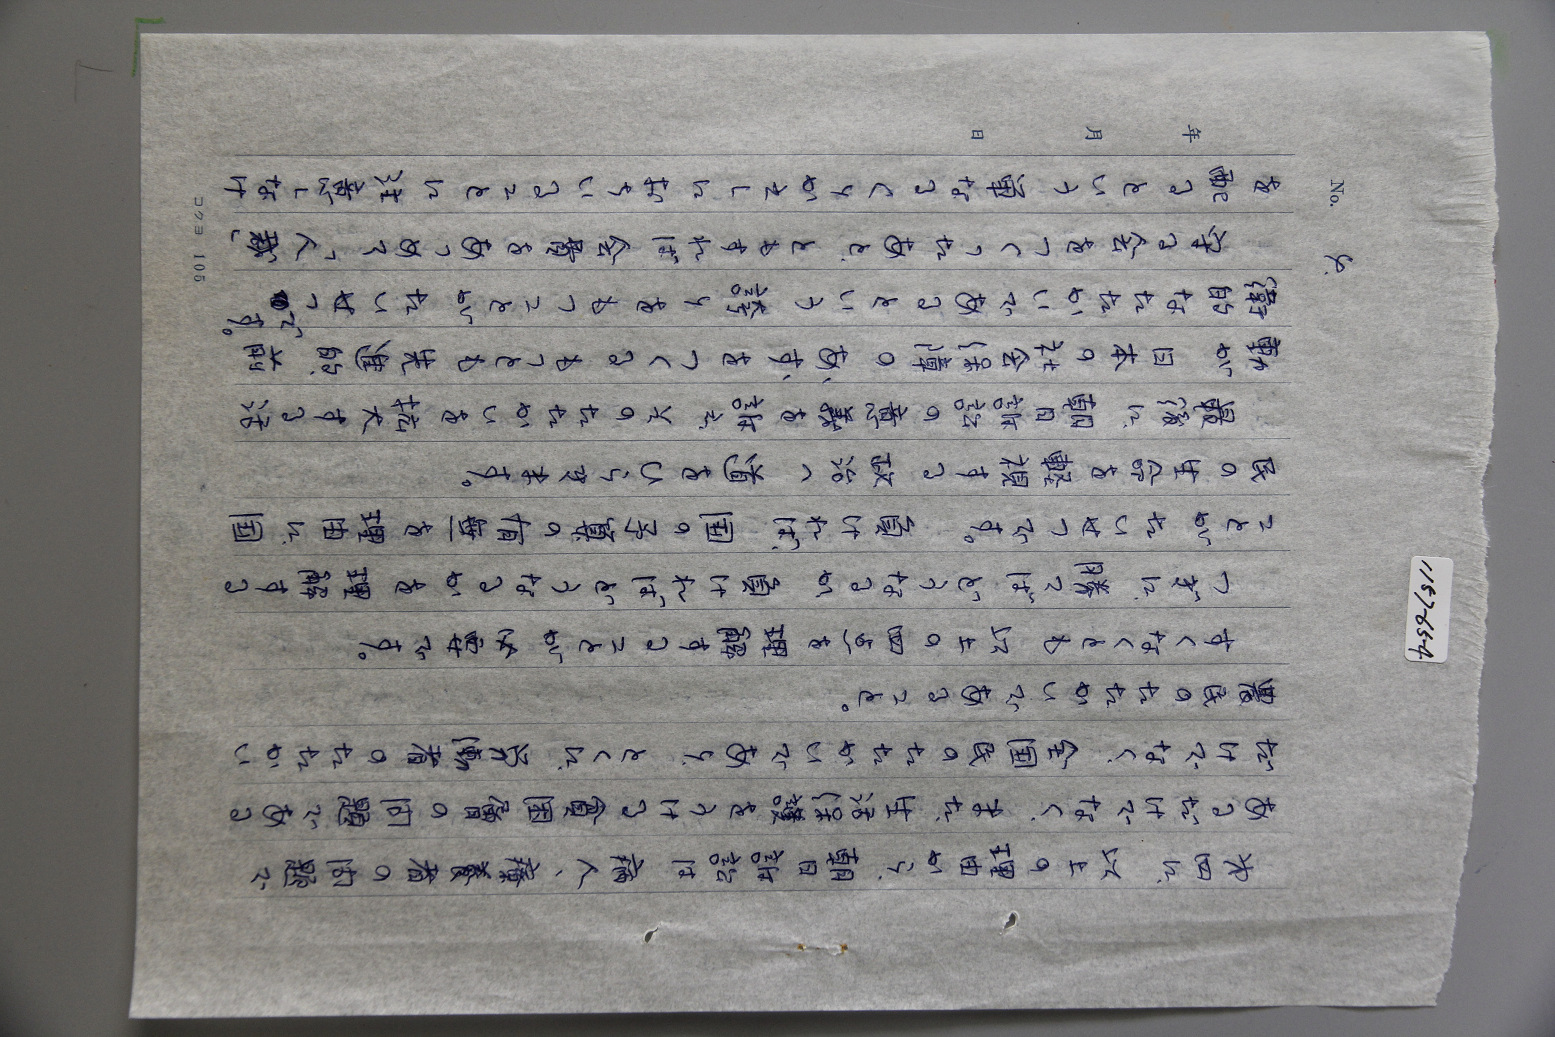 No. 4.
年 月 日
才四に、以上の理由から、朝日訴訟は一病人、一療養者の問題で
あるだけでなく、また、生活保護をうける貧困層の問題である
だけでなく、全国民のたたかいであり、とくに、労働者のたたかい
農民のたたかいであること。
すくなくとも以上の四点を理解することが必要です。
つぎに、勝てばどうなるか、負ければどうなるかを理解する
ことがたいせつです。負ければ、国の予算の有無を理由に、国
民の生命を軽視する政治へ道をひらきます。
最後に、朝日訴訟の意義を訴え、のたたかいを拡大する活
動が日本の社会保障のあすをつくるもっとも先進的、
的なたたかいであるという誇りをもつことがたいせつです。
守る会をつくったあと、ともすれば会費をあつめて「人裁」
を配るという単なるくりかえしにおちいることに注意しなけ
コクヨ 105
1187-65-4